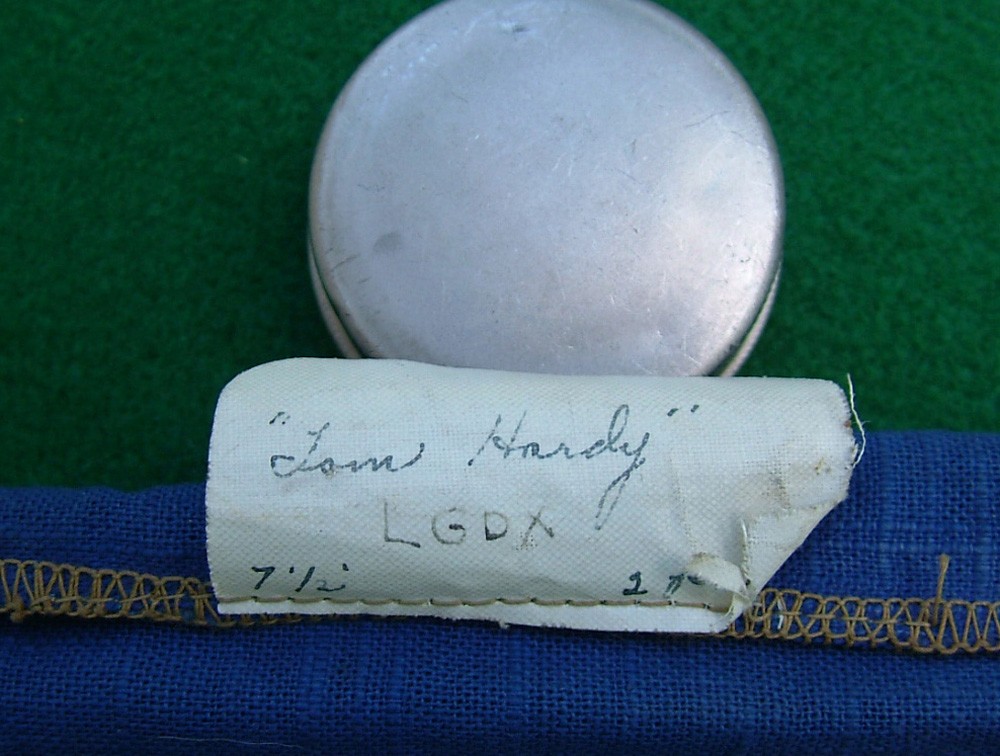 "Tom Hardy"
LGDX
7 1/2' 2